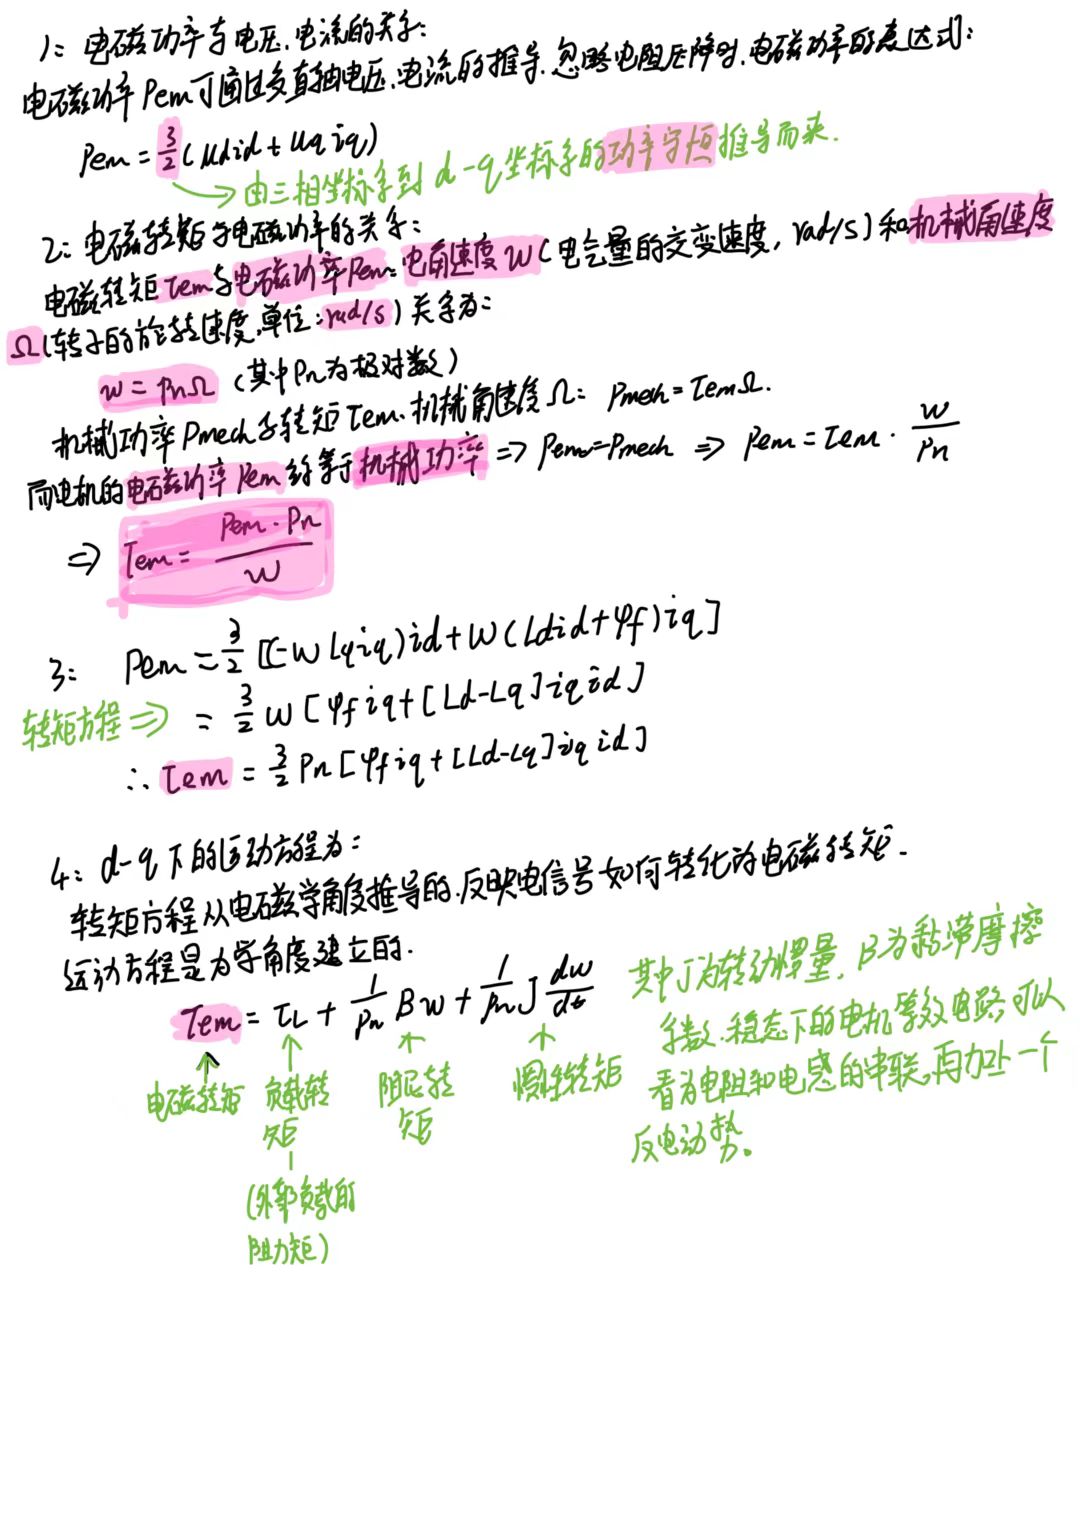 1: 电磁功率与电压、电流的关系:
电磁功率 Pem 可通过交直轴电压、电流的推导. 忽略电阻压降时, 电磁功率的表达式:
Pem = 3/2 (udid + uqiq)
由三相坐标系到 d-q 坐标系的功率守恒推导而来.
2: 电磁转矩与电磁功率的关系:
电磁转矩 Tem 与电磁功率 Pem: 电角速度 W (电气量的交变速度, rad/s) 和机械角速度
Ω (转子的旋转速度, 单位: rad/s) 关系为:
w = PnΩ (其中 Pn 为极对数)
机械功率 Pmech 与转矩 Tem、机械角速度 Ω: Pmech = TemΩ.
而电机的电磁功率 Pem 约等于机械功率 => Pem=Pmech => Pem = Tem · w/Pn
=> Tem = Pem·Pn/W
3: Pem = 3/2 [(-W Lqiq)id + W (Ldid + φf)iq]
转矩方程 => = 3/2 W [φfiq + [Ld-Lq]iqid]
∴ Tem = 3/2 Pn [φfiq + [Ld-Lq]iqid]
4: d-q 下的运动方程为:
转矩方程从电磁学角度推导的, 反映电信号如何转化为电磁转矩.
运动方程是力学角度建立的.
Tem = TL + 1/Pn Bw + 1/Pn J dw/dt
电磁转矩
负载转矩
(外部负载的阻力矩)
阻尼转矩
惯性转矩
其中 J 为转动惯量, B 为黏滞摩擦
系数. 稳态下的电机等效电路, 可以
看为电阻和电感的串联, 再加上一个
反电动势。